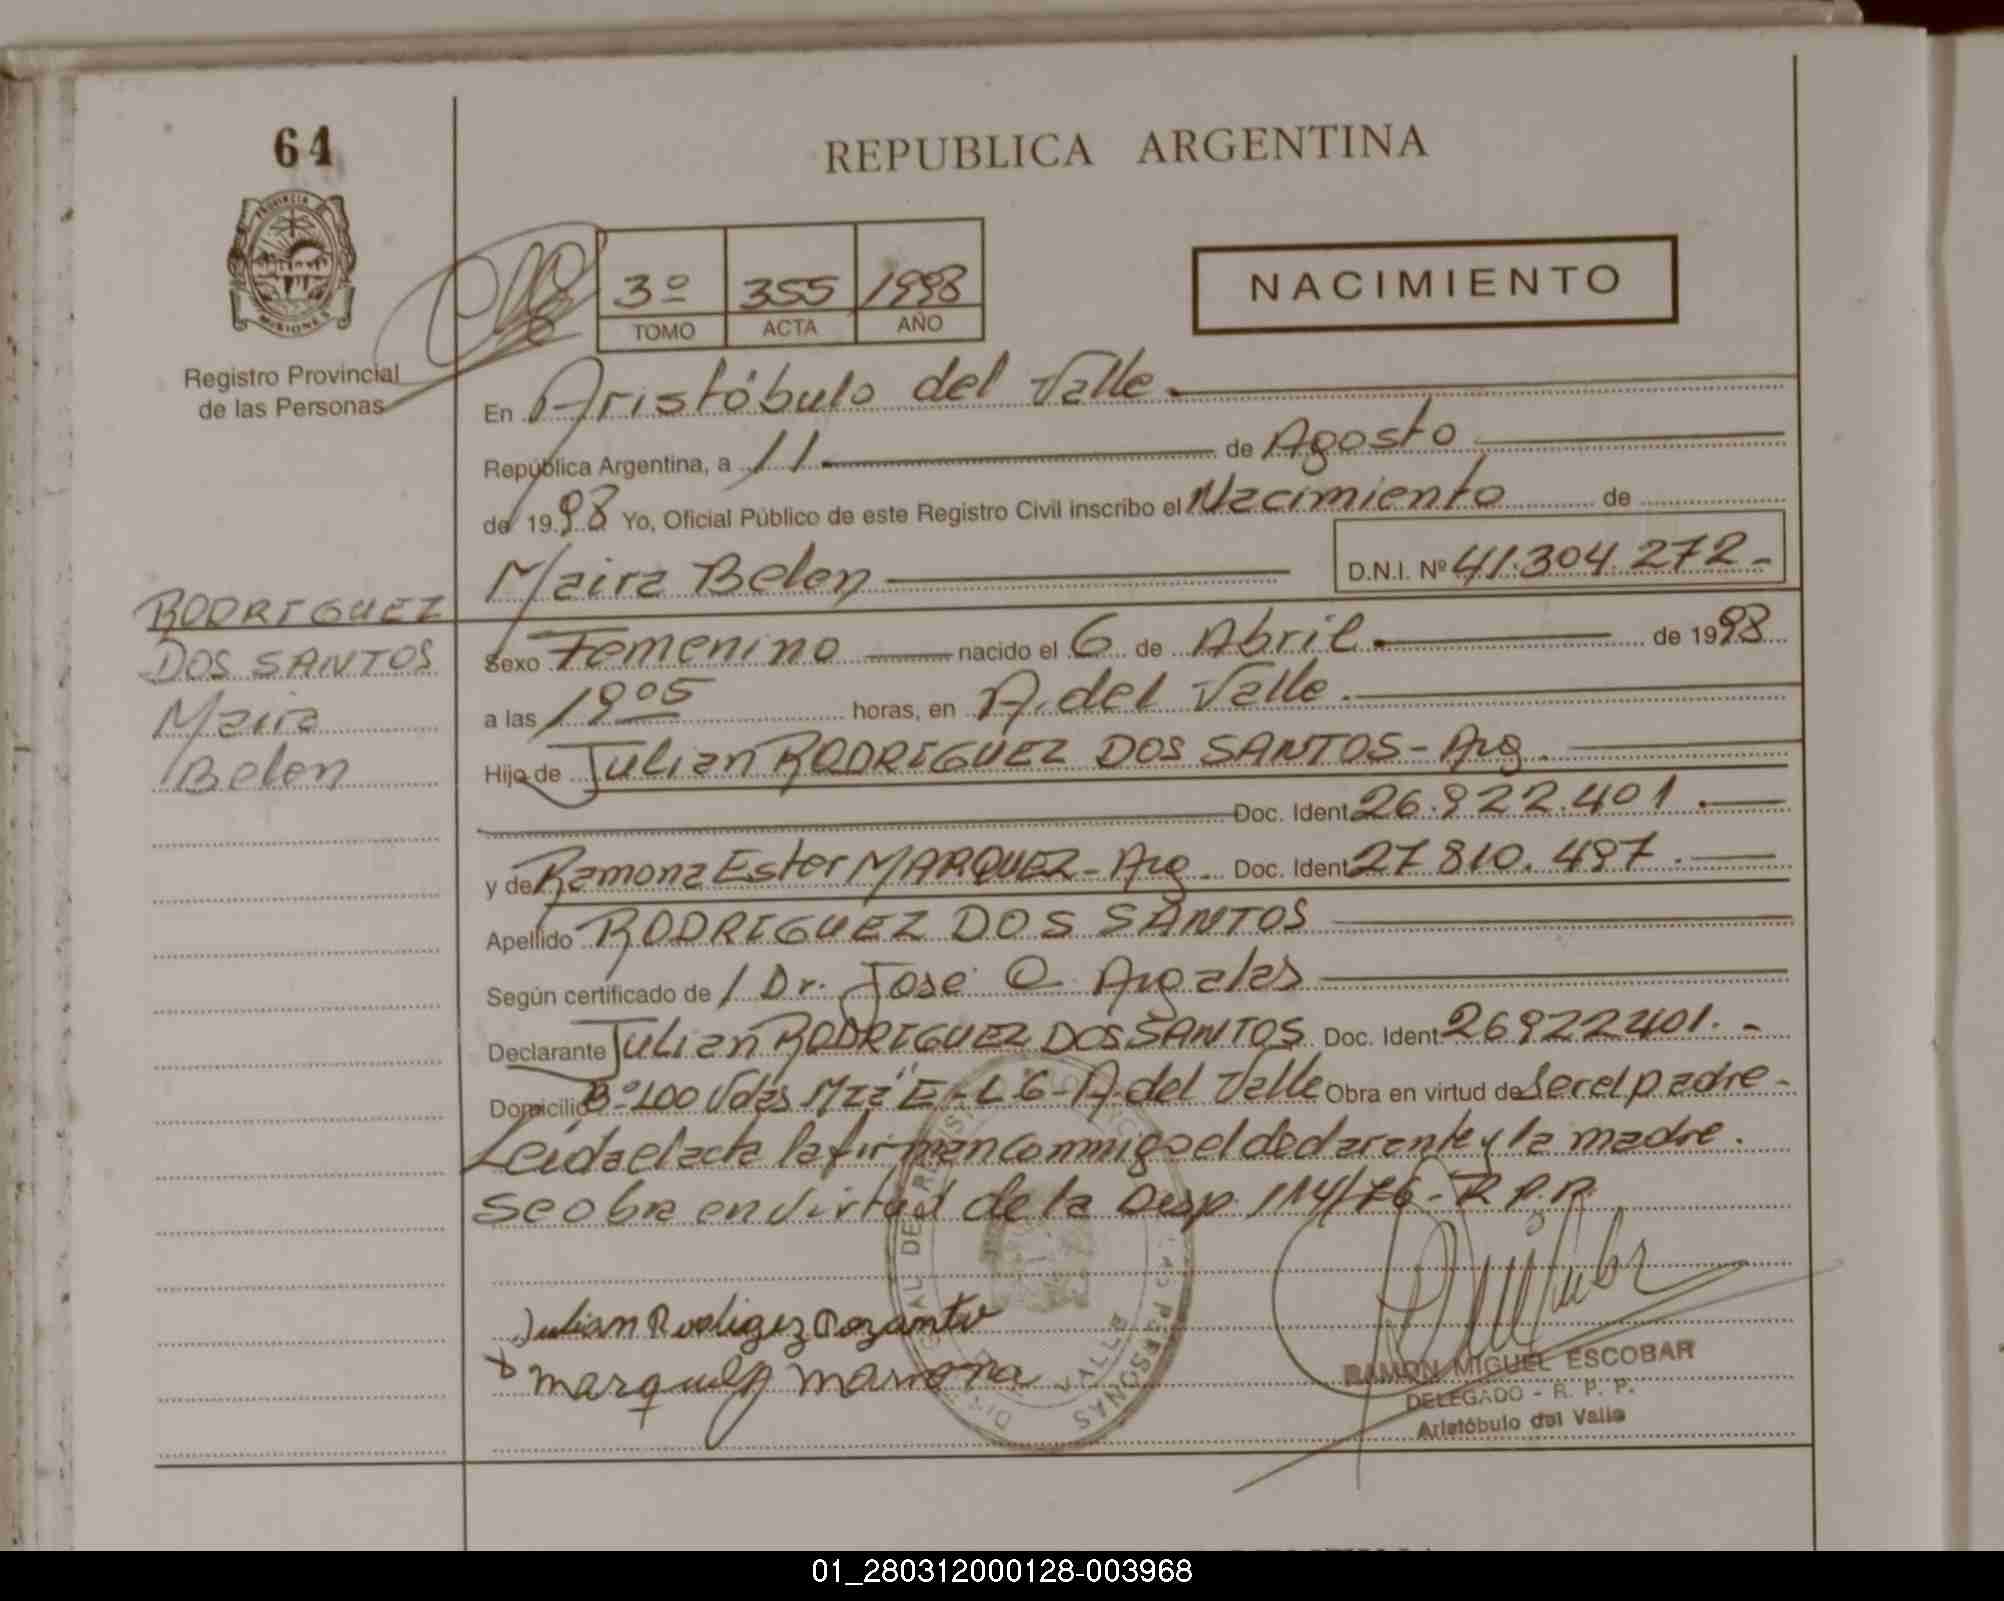 64
REPUBLICA ARGENTINA
PROVINCIA
MISIONES
Registro Provincial
de las Personas
3º 355 1998
TOMO ACTA AÑO
NACIMIENTO
En Aristóbulo del Valle
República Argentina, a 11 de Agosto
de 19 98 Yo, Oficial Público de este Registro Civil inscribo el Nacimiento de
Maira Belen D.N.I. Nº 41.304.272-
RODRIGUEZ
DOS SANTOS
Maira
Belen
Sexo Femenino nacido el 6 de Abril de 19 98
a las 19 05 horas, en A. del Valle.
Hijo de Julian RODRIGUEZ DOS SANTOS - Arg.
Doc. Ident. 26.922.401.
y de Ramona Ester MARQUEZ - Arg. Doc. Ident. 27 810.497.
Apellido RODRIGUEZ DOS SANTOS
Según certificado de Dr. José O. Argalas
Declarante Julian RODRIGUEZ DOS SANTOS Doc. Ident. 26922401.-
Domicilio Bº 100 Vdas Mza "E - L 6 - A. del Valle Obra en virtud de Ser el padre -
Leída el acta la firman conmigo el declarante y la madre.
Se obra en virtud de la Disp. 114/76 - R.P.P.
Julian Rodigez Dozantv
Marquez
RAMON MIGUEL ESCOBAR
DELEGADO - R. P. P.
Aristóbulo del Valle
VALLE
01_280312000128-003968